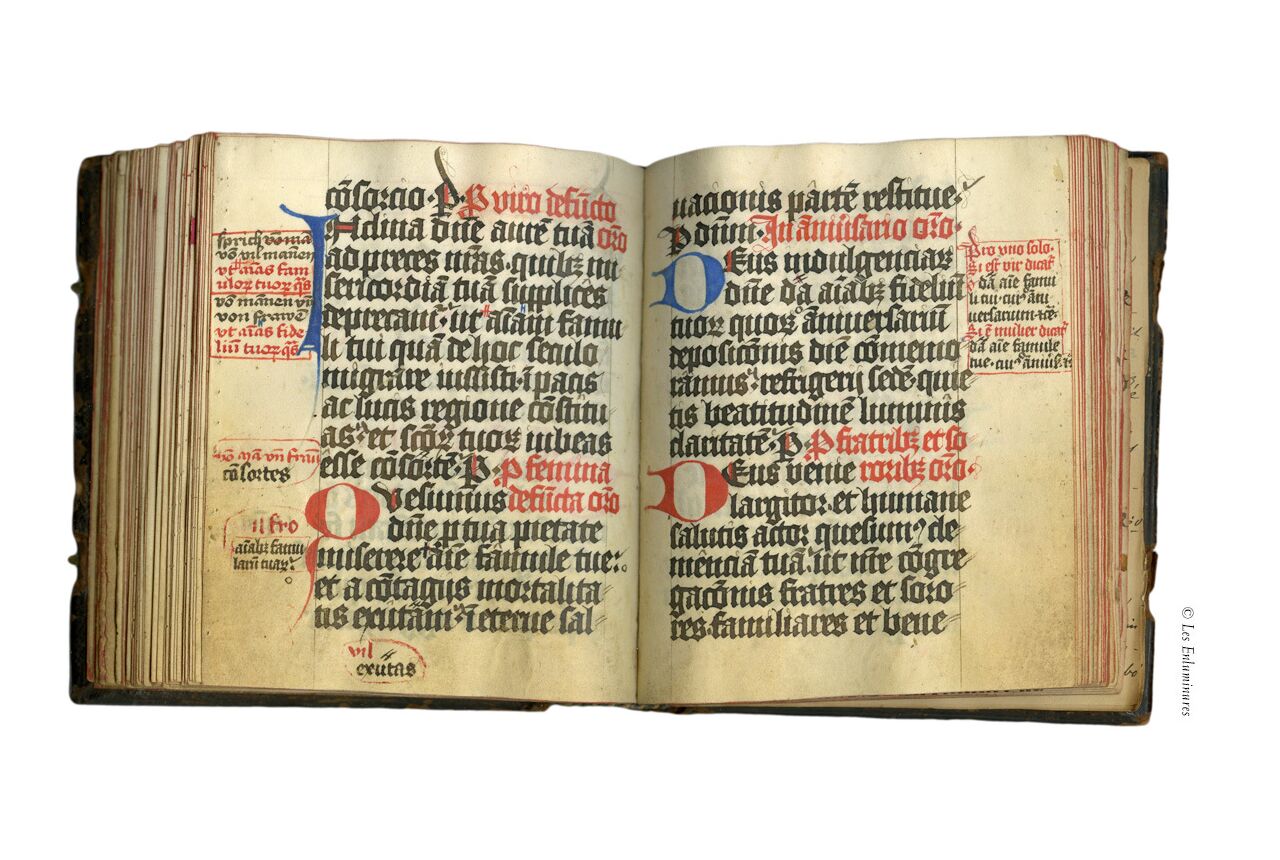 cōsorcio · P̄ · P̱ viro defūcto
Inclina dn̄e aurē tuā orō
ad preces nr̄as quibꝫ mi
sericordiā tuā supplices
deprecamꝰ · ut aīam famu
li tui quā de hoc seculo
migrare iussisti · ī pacis
ac lucis regione cōstitu
as · et scōꝝ tuoꝝ iubeas
esse cōsortē · P̄ · P̱ femina
Quesumus defūcta orō
dn̄e p̱ tua pietate
miserere aīe famule tue ·
et a cōtagijs mortalita
tis exutam · ī eterne sal
sprich vō ma
vō vil mannen
vt aīas fam
uloꝝ tuoꝝ qs̄
vō mannen vn̄
von frawē
vt aīas fide
liū tuoꝝ qs̄
vō man vn̄ frau
cōsortes
il fro
aīabꝫ famu
larū tuaꝝ
vil
exutas
uacionis partē restitue ·
P̱ dn̄m · In āniūsario orō ·
Deus indulgenciaꝝ
dn̄e dā aīabꝫ fideliū
tuoꝝ quoꝝ āniversariū
deposicōnis diē cōmemo
ramus · refrigerij sedē · quie
tis beatitudinē luminis
claritatē · P̱ · P̱ fratribꝫ et so
Deus venie roribꝫ orō ·
largitor · et humane
salutis actor quesumꝰ cle
mēnciā tuā · ut nr̄e cōgre
gacōnis fratres et soro
res · familiares et bene
Pro vno solo ·
Si est vir dicat̄
dā aīe famu
li tui cuiꝰ āni
versarium · rc̄
Si ē mulier dicat̄
dā aīe famule
tue · cuiꝰ āniūs · rc̄
© Les Enluminures